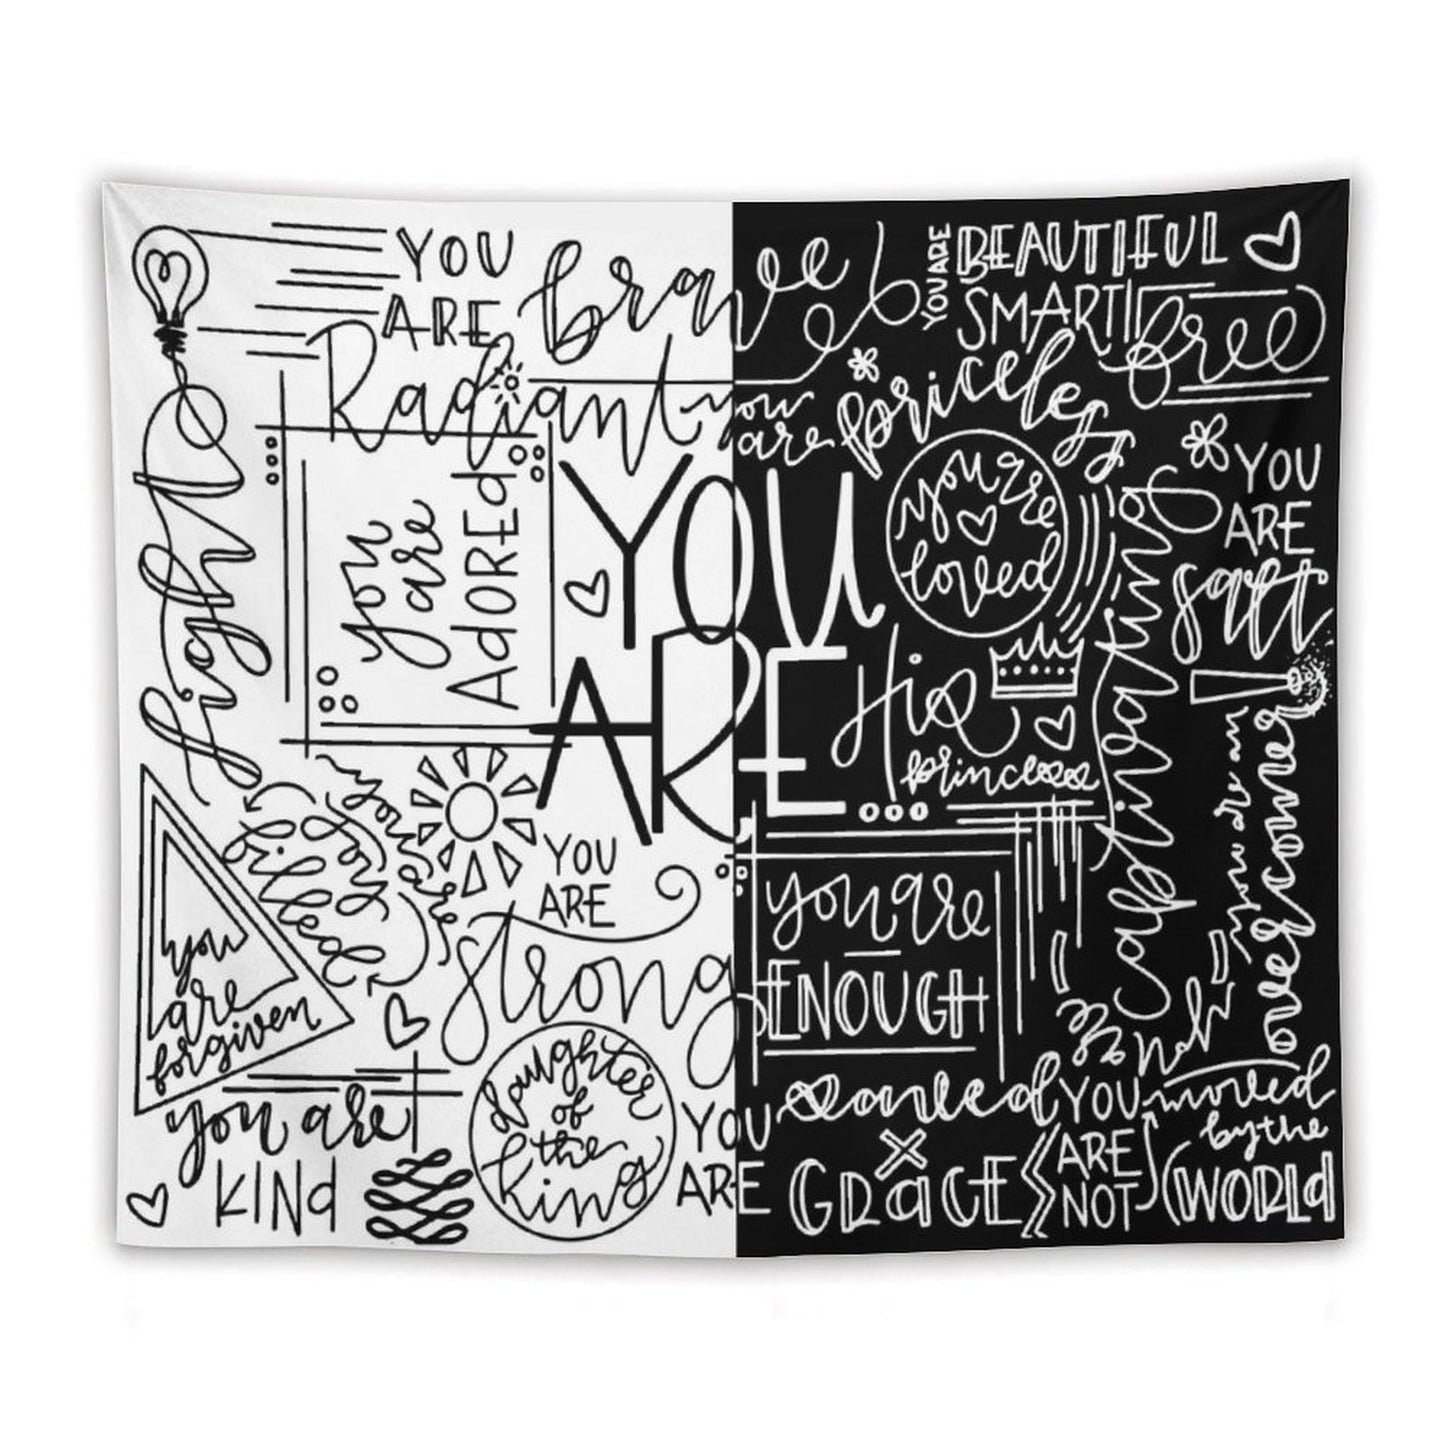 YOU
ARE
brave
Radiant
light
you
are
ADORED
YOU
ARE
you are
joy
filled
you
are
forgiven
YOU
ARE
strong
you are
KIND
daughter
of
the
king
YOU ARE
BEAUTIFUL
SMART
free
you
are
priceless
you're
loved
His
princess
captivating
YOU
ARE
salt
you are an
overcomer
you are
ENOUGH
YOU
ARE
GRACE
YOU
ARE
NOT
moved
by the
WORLD